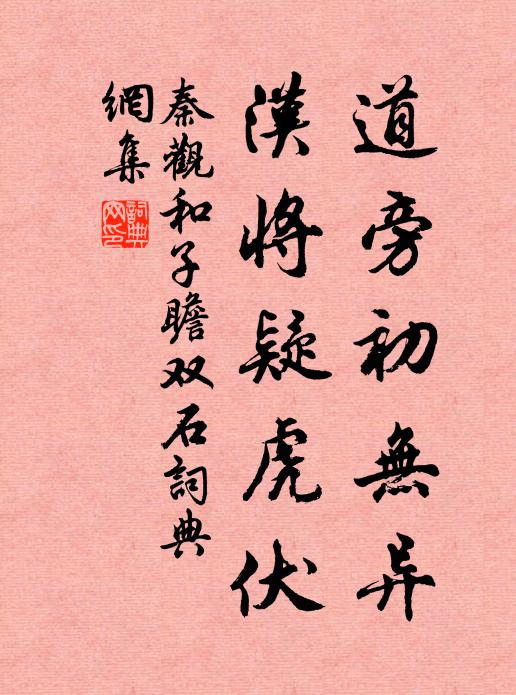 道旁初無异
漢將疑虎伏
秦觀和子瞻双石詞典
網集
詞典網印